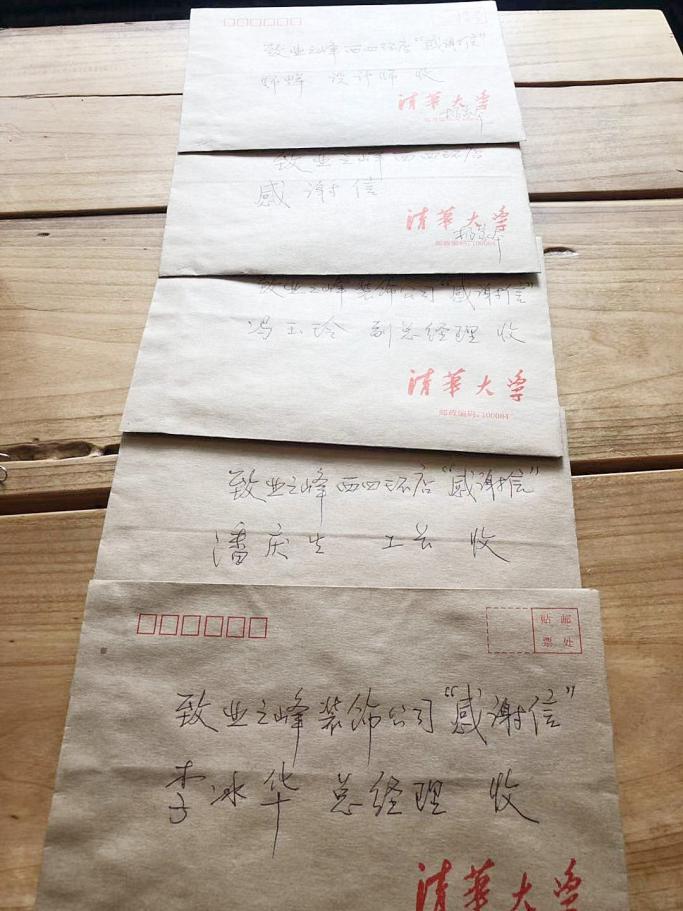 致业之峰西四环店“感谢信”
设计师 收
清华大学
致业之峰西四环店
感谢信
清華大学
邮政编码:100084
致业之峰装饰公司“感谢信”
冯玉玲 副总经理 收
清華大学
邮政编码:100084
致业之峰西四环店“感谢信”
潘庆生 工长 收
贴 邮
票 处
致业之峰装饰公司“感谢信”
李冰华 总经理 收
清華大学